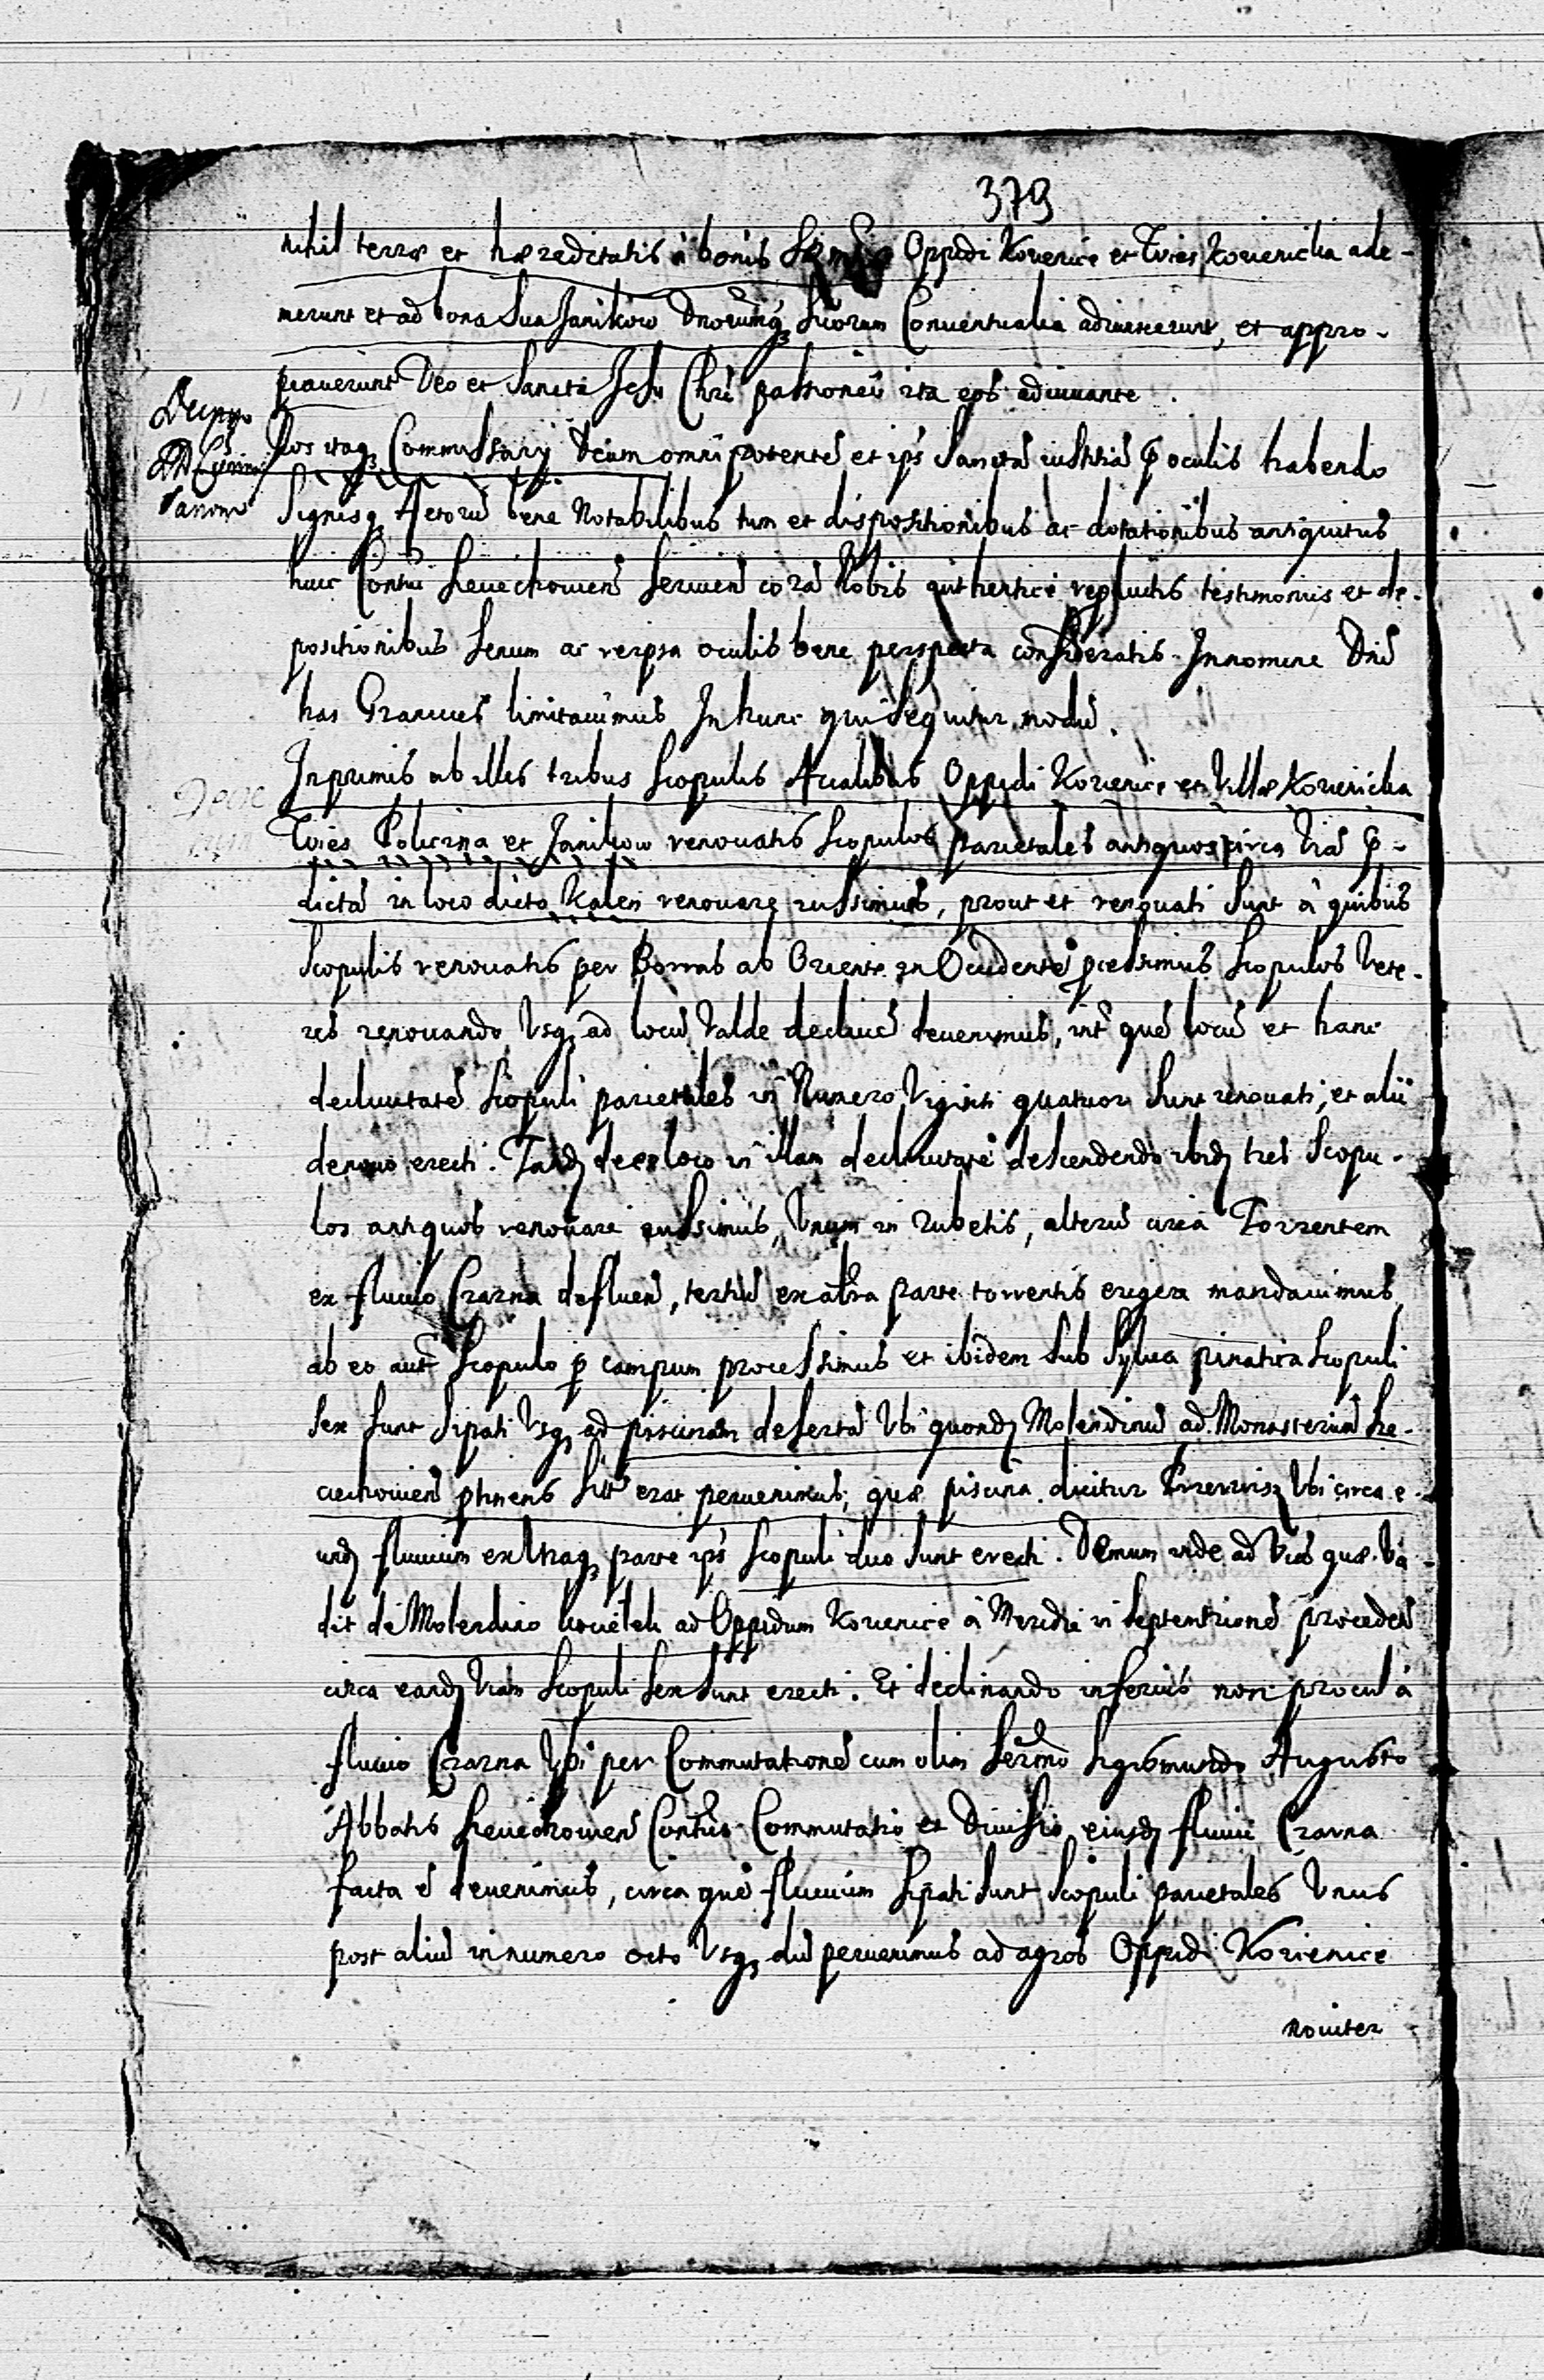 379
nihil terræ et hæreditatis à bonis Oppidi Kozienice et Kozienicka ade-
merunt et ad bona sua Janikow Dnorumq suorum Conuentualia adiunxerunt, et appro-
piauerunt Deo et Sancta Jesu Chri passione ita eos adiuuante.
Nos itaq Commissarÿ Deum omnipotentē et ips sanctā iustitiā p oculis habendo
Signisq Actorū bene Notabilibus tum et dispositionibus ac dotationibus antiquitus
huic Conui Sieciechouien seruien corā Nobis authentice testimoniis et de-
positionibus senum ac reipsa oculis bene perspecta consideratis. In nomine Dni
has Granicies limitauimus In hunc qui sequitur modū.
Inprimis ab illis tribus scopulis Acialibus Oppidi Kozienice et Villæ Kozienicka
Policzna et Janikow renouatis scopulos parietales antiquos circa viā p-
dictā in loco dicto Kalen renouare iussimus, prout et renouati sunt à quibus
scopulis renouatis per Borras ab Oriente in Occidentē pcessimus scopulos vete-
res renouando Vsq ad locū Valde decliuē deuenimus, int quē locū et hanc
decliuitatē scopuli parietales in Numero Viginti quatuor sunt renouati, et alii
denouo erecti. Tandē de eo loco in illam decliuitatē descendendo ibidē tres scopu-
los antiquos renouari iussimus, Vnum in rubetis, alterū circa Torrentem
ex fluuio Czarna defluen, tertiū ex altra parte torrentis erigere mandauimus,
ab eo aut scopulo p campum processimus et ibidem sub sylua pinatica scopuli
sex sunt sipati Vsq ad piscinam desertā Vbi quondā Molendinū ad Monasteriū Sie-
ciechouien ptinens sitū erat peruenimus, quæ piscina dicitur Vbi circa e-
undē fluuium ex vtraq parte ips scopuli duo sunt erecti. Demum inde ad viā quæ va-
dit de Molendino ad Oppidum Kozienice à Meridie in septentrionē proceden
circa eandē viam scopuli sex sunt erecti. Et declinando inferius non procul à
fluuio Czarna Vbi per Commutationē cum olim Sermo Sigismundo Augusto
Abbatis Sieciechouien Contus Commutatio et Diuisio eiusdē fluuii Czarna
facta ē deuenimus, circa quē fluuium sipati sunt scopuli parietales Vnus
post aliū in numero octo Vsq dū peruenimus ad agros Oppidi Kozienice
nouiter